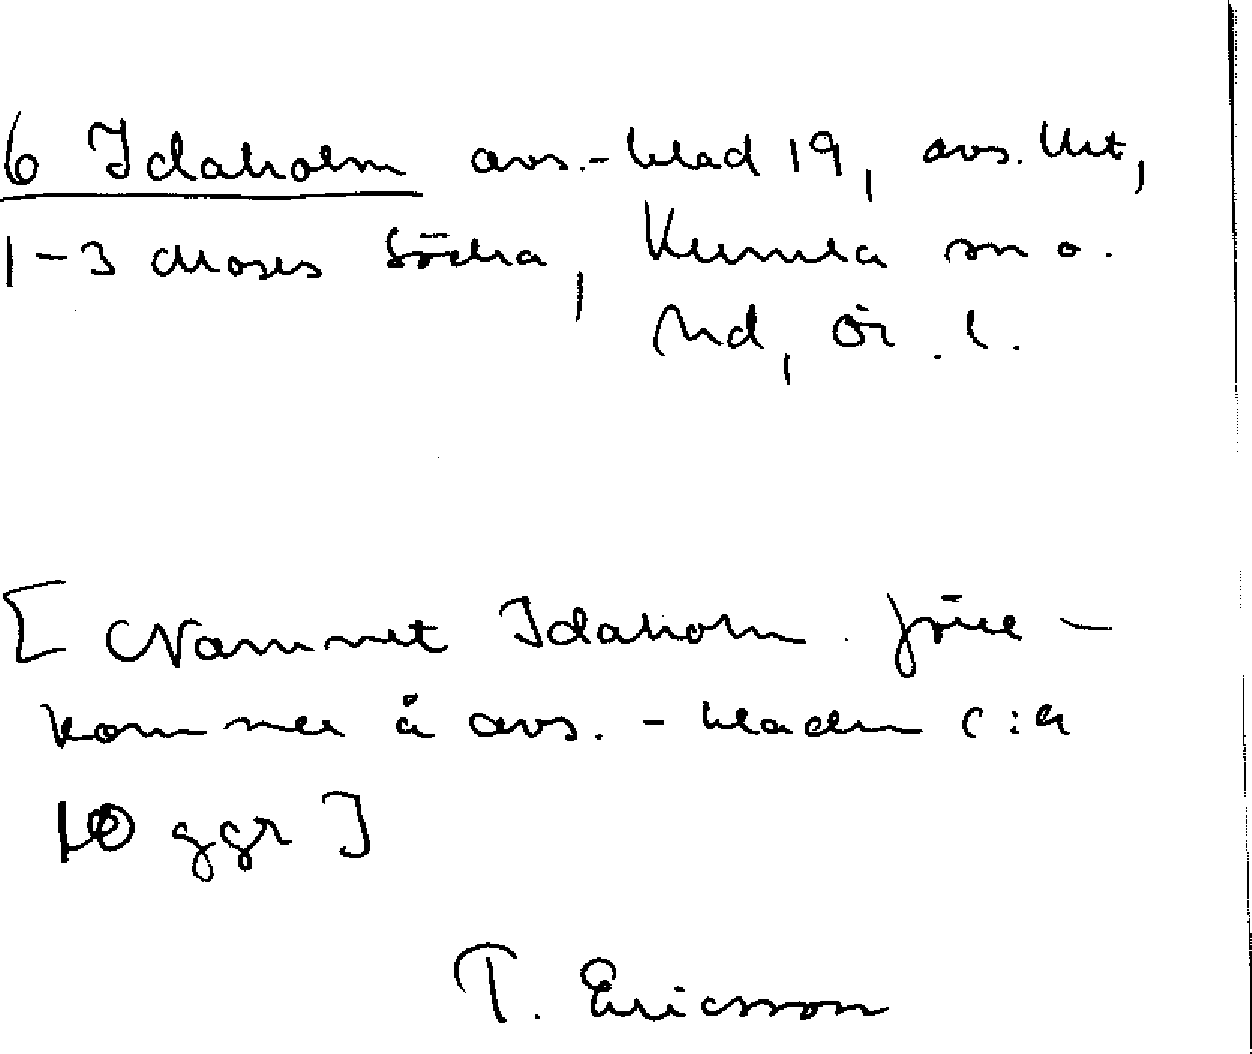 6 Idaholm avs.-blad 19, avs. till
1-3 moses Södra, Kumla sn o.
hd, Ör. l.
[Namnet Idaholm före-
kommer å avs.-bladen c:a
10 ggr]
T. Ericsson